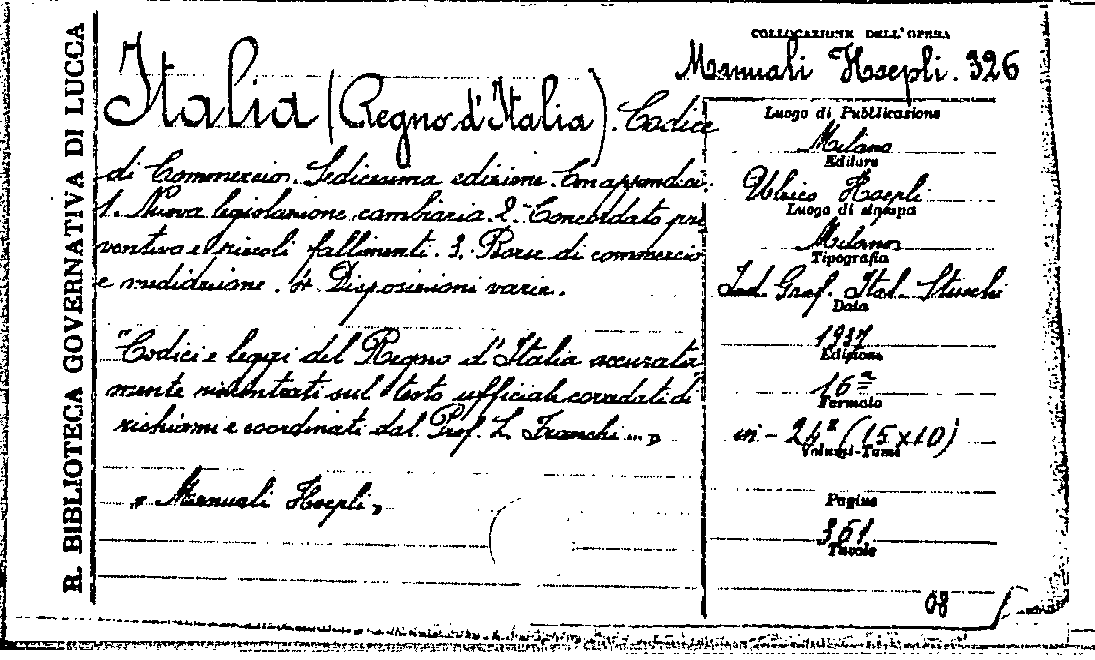 R. BIBLIOTECA GOVERNATIVA DI LUCCA
COLLOCAZIONE DELL'OPERA
Manuali Hoepli. 326
Italia (Regno d'Italia). Codice
di Commercio. Sedicesima edizione. Con appendici:
1. Nuova legislazione cambiaria. 2. Concordato pre
ventivo e piccoli fallimenti. 3. Borse di commercio
e mediazione. 4. Disposizioni varie.
"Codici e leggi del Regno d'Italia accurata
mente riscontrati sul testo ufficiale corredati di
richiami e coordinati dal Prof. L. Franchi..."
"Manuali Hoepli"
Luogo di Pubblicazione
Milano
Editore
Ulrico Hoepli
Luogo di stampa
Milano
Tipografia
Ind. Graf. Ital. Stucchi
Data
1937
Edizione
16ª
Formato
in-24º (15x10)
Volumi-Tomi
Pagine
361
Tavole
08